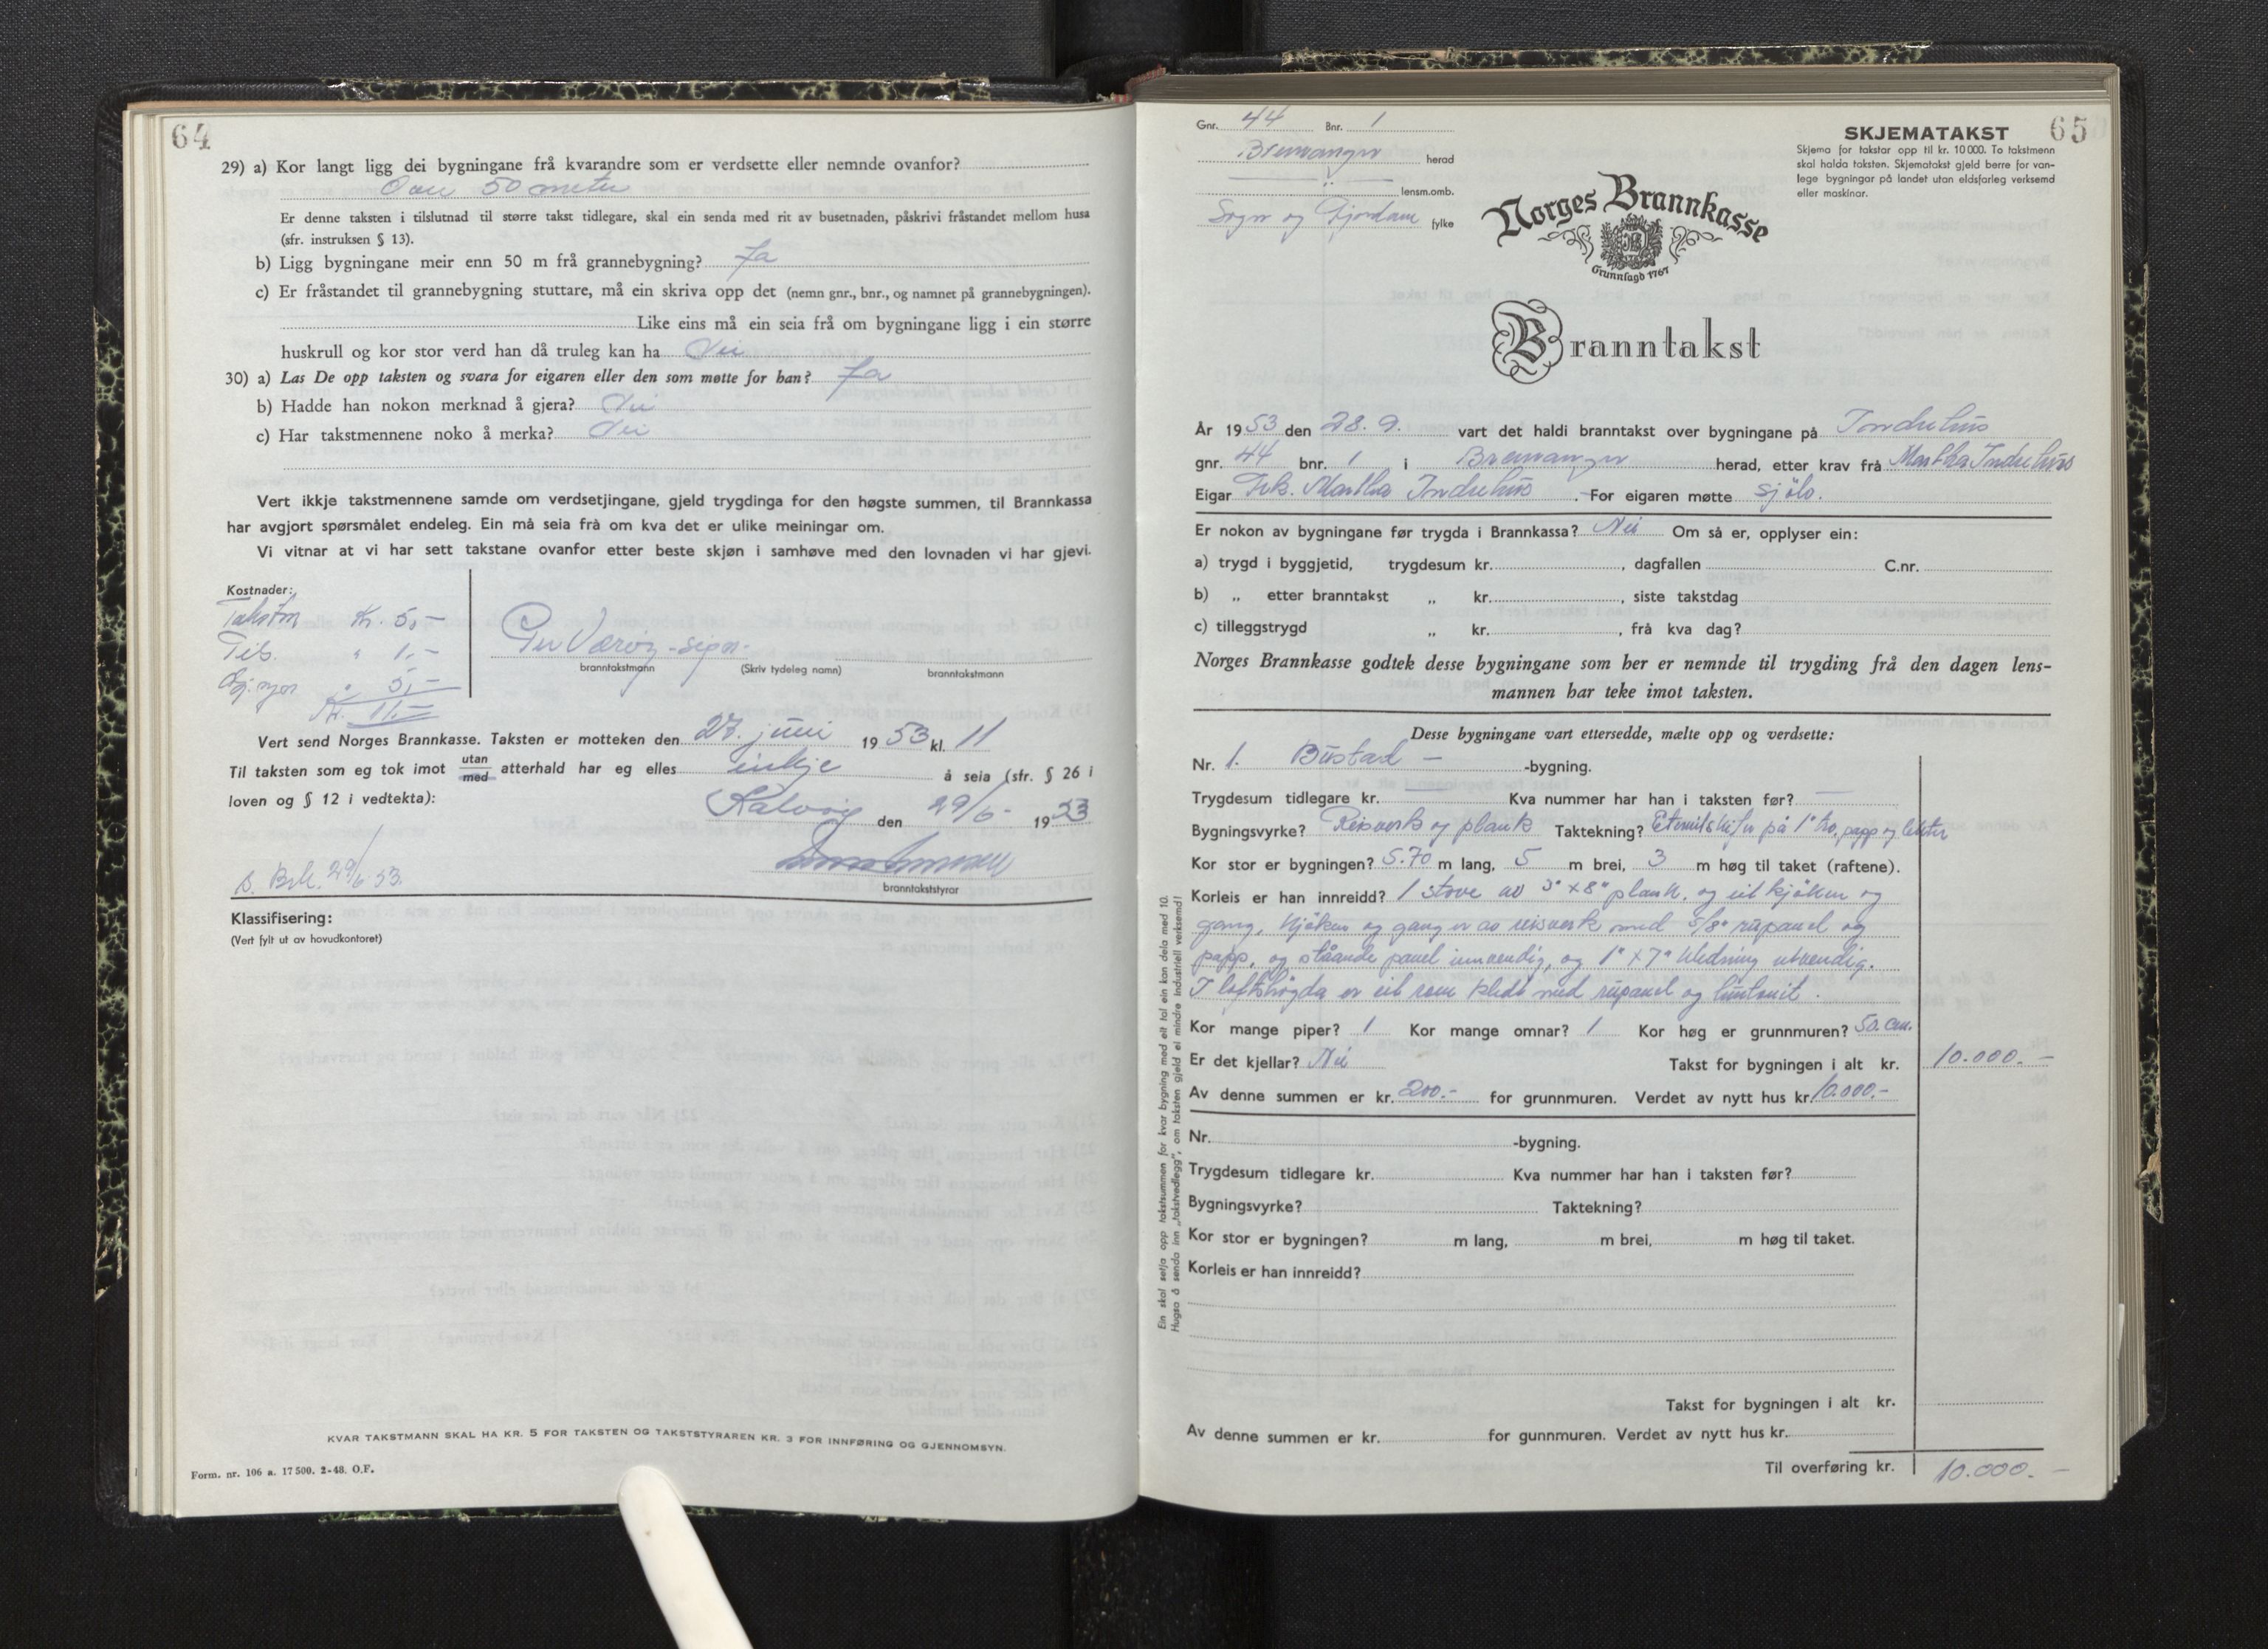 64
29) a) Kor langt ligg dei bygningane frå kvarandre som er verdsette eller nemnde ovanfor?
Over 50 meter
Er denne taksten i tilslutnad til større takst tidlegare, skal ein senda med rit av busetnaden, påskrivi fråstandet mellom husa
(sfr. instruksen § 13).
b) Ligg bygningane meir enn 50 m frå grannebygning? Ja
c) Er fråstandet til grannebygning stuttare, må ein skriva opp det (nemn gnr., bnr., og namnet på grannebygningen).
Like eins må ein seia frå om bygningane ligg i ein større
huskrull og kor stor verd han då truleg kan ha Nei
30) a) Las De opp taksten og svara for eigaren eller den som møtte for han? Ja
b) Hadde han nokon merknad å gjera? Nei
c) Har takstmennene noko å merka? Nei
Vert ikkje takstmennene samde om verdsetjingane, gjeld trygdinga for den høgste summen, til Brannkassa
har avgjort spørsmålet endeleg. Ein må seia frå om kva det er ulike meiningar om.
Vi vitnar at vi har sett takstane ovanfor etter beste skjøn i samhøve med den lovnaden vi har gjevi.
Kostnader:
Takstm Kr. 5,-
Tils. " 1,-
" 5,-
Kr. 11,-
Per Værøy -sign-
branntakstmann (Skriv tydeleg namn) branntakstmann
Vert send Norges Brannkasse. Taksten er motteken den 27. juni 1953 kl. 11
Til taksten som eg tok imot utan/med atterhald har eg elles inkje å seia (sfr. § 26 i
loven og § 12 i vedtekta):
Kalvåg den 29/6- 1953
branntakststyrar
S. Brk. 29/6 53.
Klassifisering:
(Vert fylt ut av hovudkontoret)
KVAR TAKSTMANN SKAL HA KR. 5 FOR TAKSTEN OG TAKSTSTYRAREN KR. 3 FOR INNFØRING OG GJENNOMSYN.
Form. nr. 106 a. 17 500. 2-48. O.F.
65
Gnr. 44 Bnr. 1
Bremanger herad
" lensm.omb.
Sogn og Fjordane fylke
SKJEMATAKST
Skjema for takstar opp til kr. 10 000. To takstmenn
skal halda taksten. Skjematakst gjeld berre for van-
lege bygningar på landet utan eldsfarleg verksemd
eller maskinar.
Norges Brannkasse
Grunnlagd 1767
Branntakst
År 1953 den 28. 9. vart det haldi branntakst over bygningane på Indrehus
gnr. 44 bnr. 1 i Bremanger herad, etter krav frå Martha Indrehus
Eigar Frk. Martha Indrehus. For eigaren møtte sjölv.
Er nokon av bygningane før trygda i Brannkassa? Nei Om så er, opplyser ein:
a) trygd i byggjetid, trygdesum kr. , dagfallen C.nr.
b) „ etter branntakst „ kr. , siste takstdag
c) tilleggstrygd „ kr. , frå kva dag?
Norges Brannkasse godtek desse bygningane som her er nemnde til trygding frå den dagen lens-
mannen har teke imot taksten.
Desse bygningane vart ettersedde, mælte opp og verdsette:
Nr. 1. Bustad - -bygning.
Trygdesum tidlegare kr. — Kva nummer har han i taksten før? —
Bygningsvyrke? Reisverk og plank Taktekning? Eternitskifer på 1" tro, papp og lekter
Kor stor er bygningen? 5.70 m lang, 5 m brei, 3 m høg til taket (raftene).
Korleis er han innreidd? 1 stove av 3" x 8" plank, og eit kjöken og
gang. Kjöken og gang er av reisverk med 5/8" rupanel og
papp, og ståande panel innvendig, og 1" x 7" kledning utvendig.
I loftshögda er eit rom kledt med rupanel og huntonit.
Kor mange piper? 1 Kor mange omnar? 1 Kor høg er grunnmuren? 50. cm.
Er det kjellar? Nei Takst for bygningen i alt kr. 10.000.-
Av denne summen er kr. 200.- for grunnmuren. Verdet av nytt hus kr. 10.000.-
Nr. -bygning.
Trygdesum tidlegare kr. Kva nummer har han i taksten før?
Bygningsvyrke? Taktekning?
Kor stor er bygningen? m lang, m brei, m høg til taket.
Korleis er han innreidd?
Takst for bygningen i alt kr.
Av denne summen er kr. for gunnmuren. Verdet av nytt hus kr.
Til overføring kr. 10.000.-
Ein skal setja opp takstsummen for kvar bygning med eit tal ein kan dela med 10.
Hugsa å senda inn „takstvedlegg", om taksten gjeld ei mindre industriell verksemd!